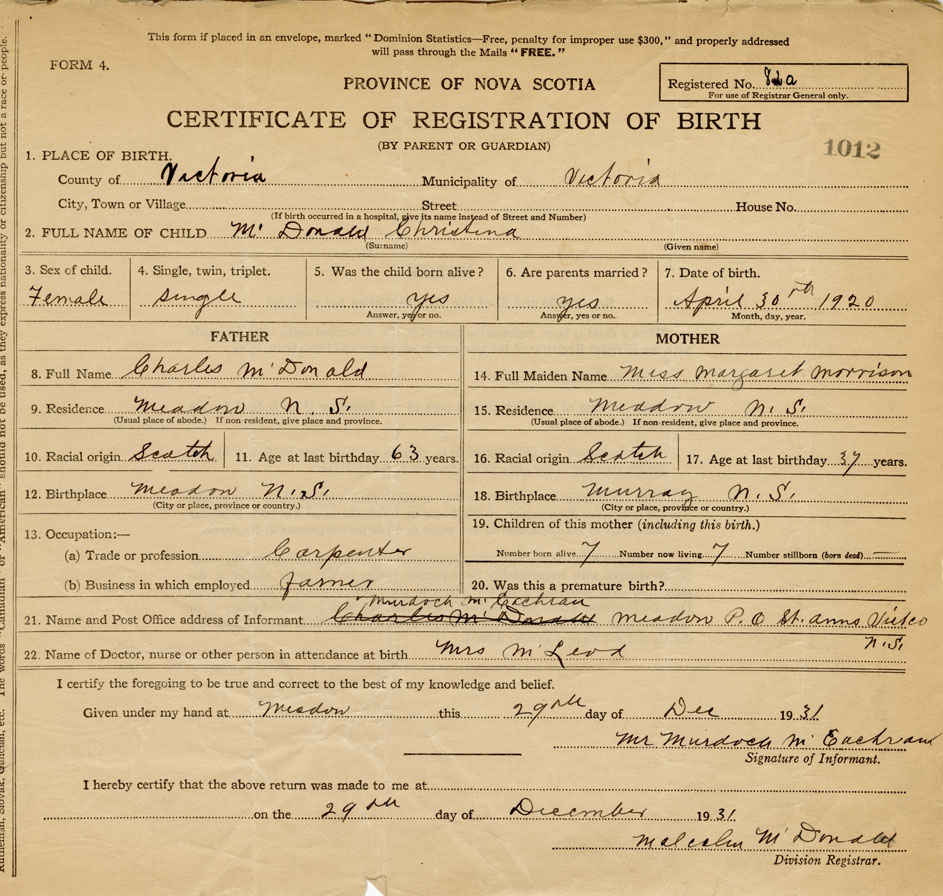 This form if placed in an envelope, marked "Dominion Statistics—Free, penalty for improper use $300," and properly addressed
will pass through the Mails "FREE."
FORM 4.
PROVINCE OF NOVA SCOTIA
Registered No. 82a
For use of Registrar General only.
CERTIFICATE OF REGISTRATION OF BIRTH
(BY PARENT OR GUARDIAN)
1012
1. PLACE OF BIRTH.
County of Victoria Municipality of Victoria
City, Town or Village Street House No.
(If birth occurred in a hospital, give its name instead of Street and Number)
2. FULL NAME OF CHILD Mc Donald Christina
(Surname) (Given name)
3. Sex of child. 4. Single, twin, triplet. 5. Was the child born alive? 6. Are parents married? 7. Date of birth.
Female single yes yes April 30th 1920
Answer, yes or no. Answer, yes or no. Month, day, year.
FATHER MOTHER
8. Full Name Charles McDonald 14. Full Maiden Name Miss Margaret Morrison
9. Residence Meadow N.S. 15. Residence Meadow N.S.
(Usual place of abode.) If non-resident, give place and province. (Usual place of abode.) If non-resident, give place and province.
10. Racial origin Scotch 11. Age at last birthday 63 years. 16. Racial origin Scotch 17. Age at last birthday 37 years.
12. Birthplace Meadow N.S. 18. Birthplace Murray N.S.
(City or place, province or country.) (City or place, province or country.)
13. Occupation:— 19. Children of this mother (including this birth.)
(a) Trade or profession Carpenter Number born alive 7 Number now living 7 Number stillborn (born dead) —
(b) Business in which employed farmer 20. Was this a premature birth?
Murdoch McEachran
21. Name and Post Office address of Informant Charles McDonald Meadow P.O St. anns Victco
N.S.
22. Name of Doctor, nurse or other person in attendance at birth Mrs McLeod
I certify the foregoing to be true and correct to the best of my knowledge and belief.
Given under my hand at Meadow this 29th day of Dec 1931
Mr Murdock McEachran
Signature of Informant.
I hereby certify that the above return was made to me at
on the 29th day of December 1931
Malcolm McDonald
Division Registrar.
Ruthenian, Slovak, Galician, etc. The words "Canadian" or "American" should not be used, as they express nationality or citizenship but not a race or people.